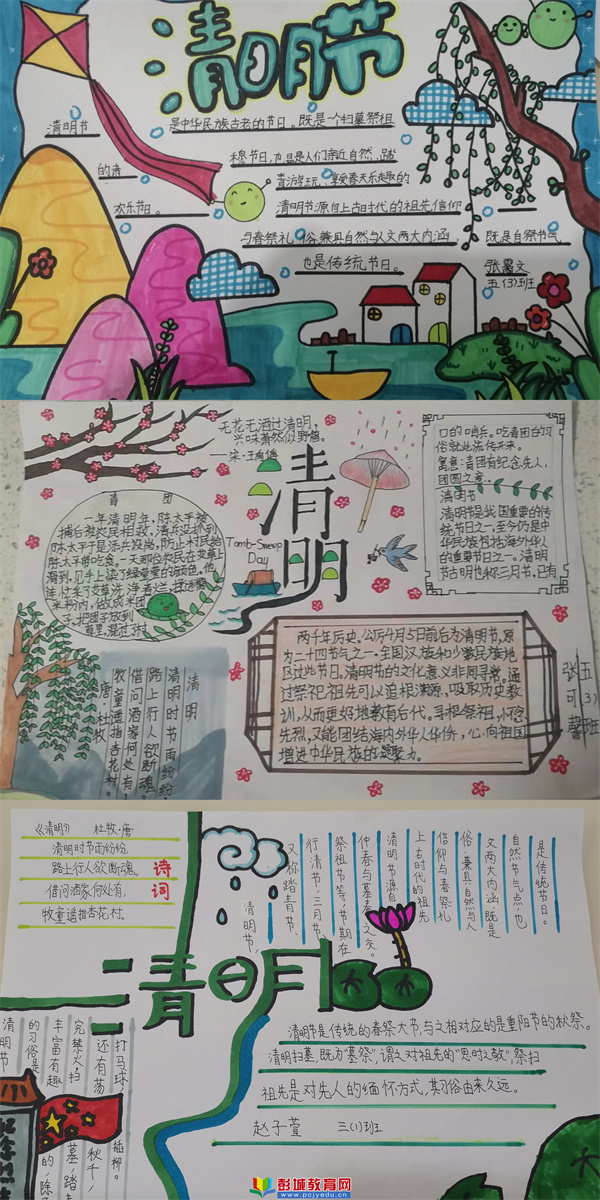 清明节
清明节
是中华民族古老的节日。既是一个扫墓祭祖
的肃
穆节日,也是人们亲近自然、踏
青游玩、享受春天乐趣的
欢乐节日。
清明节源自上古时代的祖先信仰
与春祭礼俗,兼具自然与人文两大内涵
既是自然节气
也是传统节日。
五(3)班
无花无酒过清明,
兴味萧然似野僧。
——宋·王禹偁
清明
Tomb-Sweep
Day
青团
一年清明年,陈太平被
捕后被农民相救,清兵没抓到
陈太平于是添兵设岗,防止村民给
陈太平带吃食,一天那位农民在艾草上
滑到,见手上染了绿莹莹的颜色,他
连忙采了艾草洗净煮烂挤汁揉
米粉内,做成米团
子,把团子放到
草里,混过了
口的哨兵。吃青团的习
俗就此流传开来。
寓意:青团有纪念先人,
团圆之意。
清明节
清明节是我国重要的传
统节日之一,至今仍是中
华民族包括海外华人
的重要节日之一。清明
节古明也称三月节,已有
两千年历史,公历4月5日前后为清明节,原
为二十四节气之一·全国汉族和少数民族地
区过此节日。清明节的文化意义非同寻常。通
过祭祀祖先可以追根溯源,吸取历史教
训,从而更好地教育后代。寻根祭祖,怀念
先烈,又能团结海内外华人华侨,心向祖国
增进中华民族的凝聚力。
清明
清明时节雨纷纷,
路上行人欲断魂。
借问酒家何处有,
牧童遥指杏花村。
唐·杜牧
五(3)班
张可馨
《清明》 杜牧·唐
清明时节雨纷纷,
路上行人欲断魂。
借问酒家何处有,
牧童遥指杏花村。
诗词
是传统节日。
自然节气点,也
文两大内涵,既是
俗,兼具自然与人
信仰与春祭礼
上古时代的祖先
清明节源自
仲春与暮春之交。
祭祖节等,节期在
行清节、三月节、
又称踏青节、
清明节,
清明
清明节是传统的春祭大节,与之相对应的是重阳节的秋祭。
清明扫墓,既为“墓祭”,谓之对祖先的“思时之敬”,祭扫
祖先是对先人的缅怀方式,其习俗由来久远。
赵子萱 三(1)班
清明节
的习俗是
丰富有趣
的,除了
完禁火、扫
墓,踏青
还有荡
秋千、
打马球、
插柳。
彭城教育网
www.pcjyedu.cn